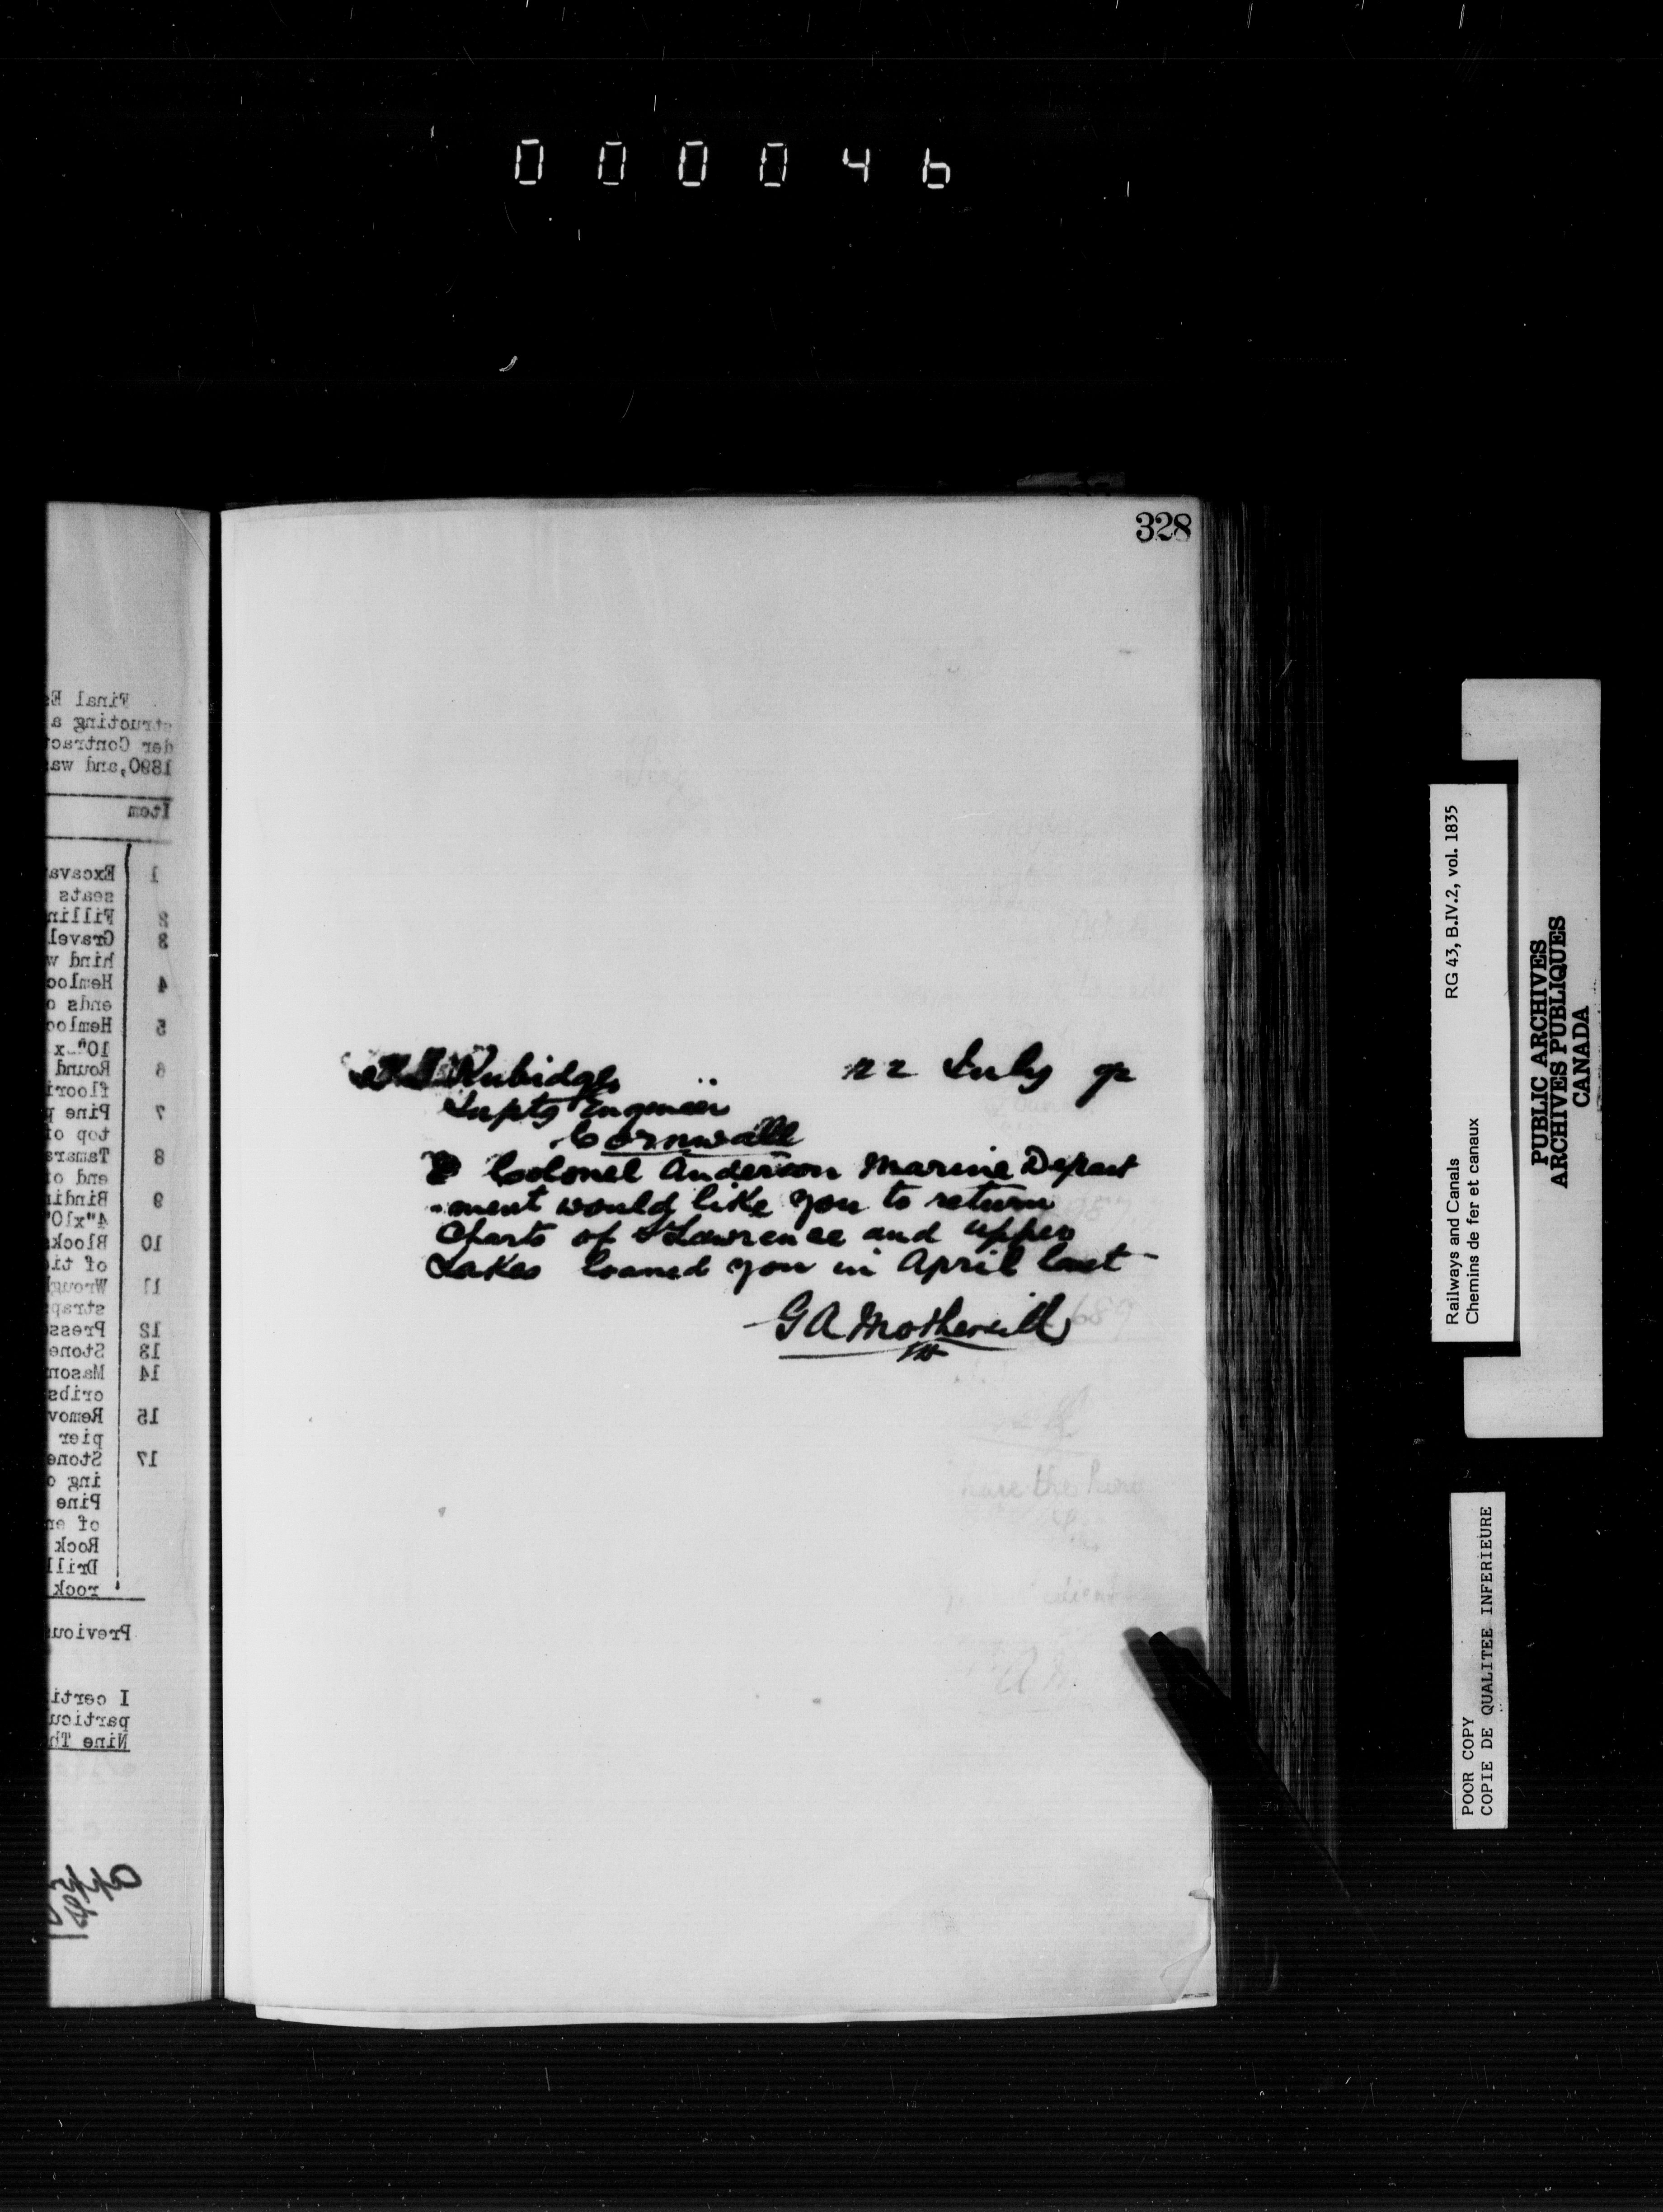 000046
328
Rubidge 22 July 92
Suptg Engineer
Cornwall
Colonel Anderson Marine Depart
-ment would like you to return
Charts of St Lawrence and upper
Lakes loaned you in April last
G A Mothersill
Final Es
structing a
der Contract
1890, and wa
Item
1 Excava
seats
2 Fillin
3 Gravel
hind w
4 Hemloc
ends o
5 Hemloc
10" x
6 Round
floori
7 Pine p
top of
8 Tamara
end of
9 Bindin
4"x10"
10 Block
of ti
11 Wroug
strap
12 Press
13 Stone
14 Mason
cribs
15 Remov
pier
17 Stone
ing o
Pine
of
Rock
Drill
rock
Previou
I certi
particu
Nine Th
Railways and Canals RG 43, B.IV.2, vol. 1835
Chemins de fer et canaux
PUBLIC ARCHIVES
ARCHIVES PUBLIQUES
CANADA
POOR COPY
COPIE DE QUALITEE INFERIEURE